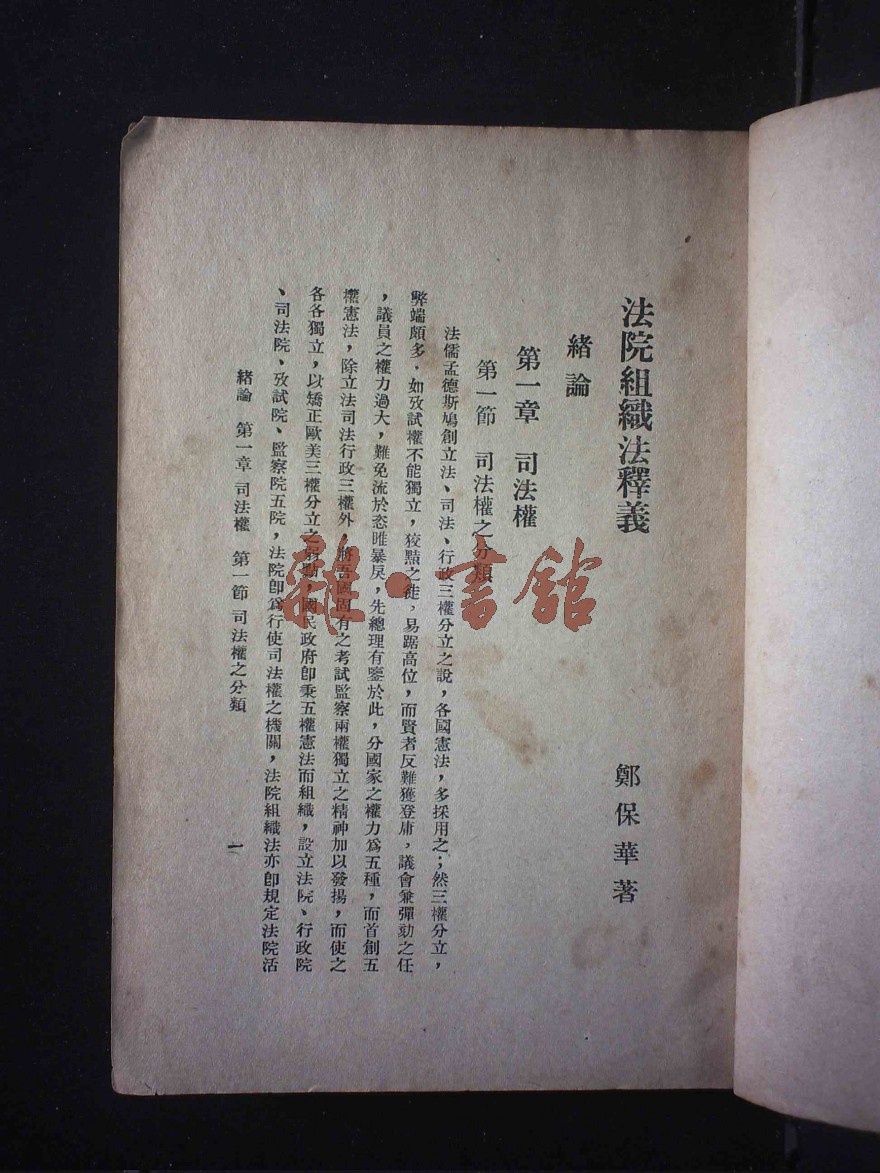 法院組織法釋義
鄭保華著
緒論
第一章 司法權
第一節 司法權之分類
法儒孟德斯鳩創立法、司法、行政三權分立之說，各國憲法，多採用之；然三權分立，
弊端頗多，如攷試權不能獨立，狡黠之徒，易踞高位，而賢者反難獲登庸，議會兼彈劾之任
，議員之權力過大，難免流於恣睢暴戾，先總理有鑒於此，分國家之權力爲五種，而首創五
權憲法，除立法司法行政三權外，將吾國固有之考試監察兩權獨立之精神加以發揚，而使之
各各獨立，以矯正歐美三權分立之弱點，國民政府卽秉五權憲法而組織，設立法院、行政院
、司法院、攷試院、監察院五院，法院卽爲行使司法權之機關，法院組織法亦卽規定法院活
緒論 第一章 司法權 第一節 司法權之分類
一
雜·書館